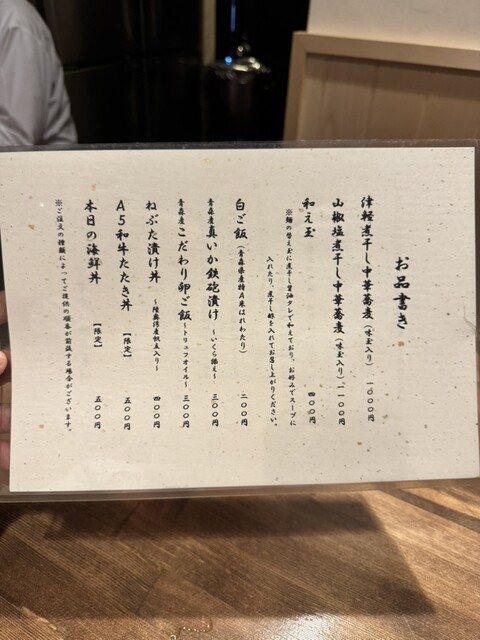 お品書き
津軽煮干し中華蕎麦（味玉入り） 一〇〇〇円
山椒塩煮干し中華蕎麦（味玉入り） 一一〇〇円
和え玉 四〇〇円
※麺の替え玉に煮干し醤油タレで和えており、お好みでスープに
入れたり、煮干し酢を入れてお召し上がりください。
白ご飯（青森県産特A米はれわたり） 二〇〇円
青森産真いか鉄砲漬け～いくら添え～ 三〇〇円
青森産こだわり卵ご飯～トリュフオイル～ 三〇〇円
ねぶた漬け丼～陸奥湾産帆立入り～ 四〇〇円
A5和牛たたき丼【限定】 五〇〇円
本日の海鮮丼【限定】 五〇〇円
※ご注文の種類によってご提供の順番が前後する場合がございます。